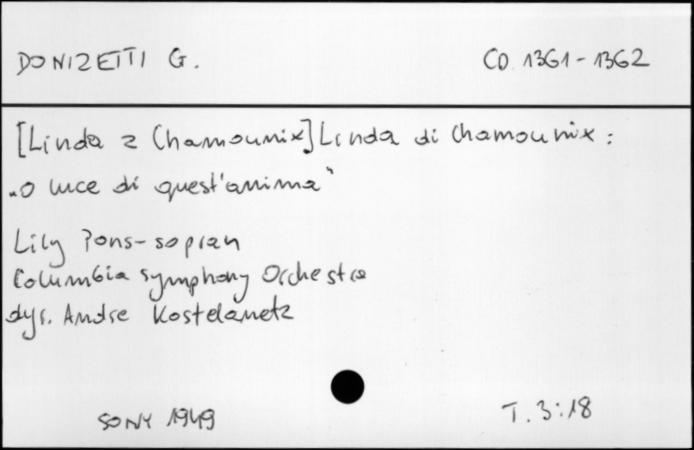 DONIZETTI G.
CD 1361-1362
[Linda z Chamounix] Linda di Chamounix:
„O luce di quest'anima"
Lily Pons-sopran
Columbia Symphony Orchestra
dyr. Andre Kostelanetz
SONY 1949
T. 3:18